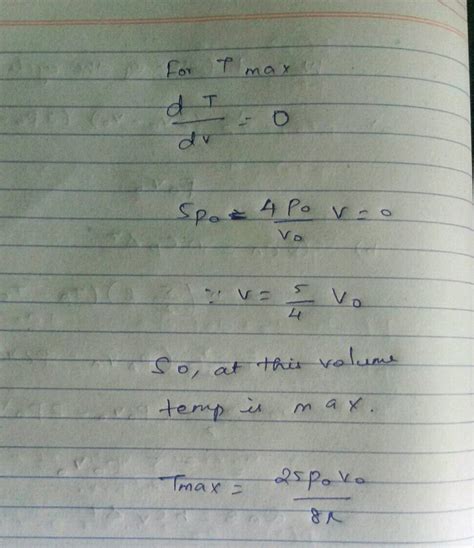 For T max
dT/dv = 0
5p₀ - 4p₀/v₀ v = 0
∵ v = 5/4 v₀
So, at this volume
temp is max.
Tmax = 25p₀v₀/8R